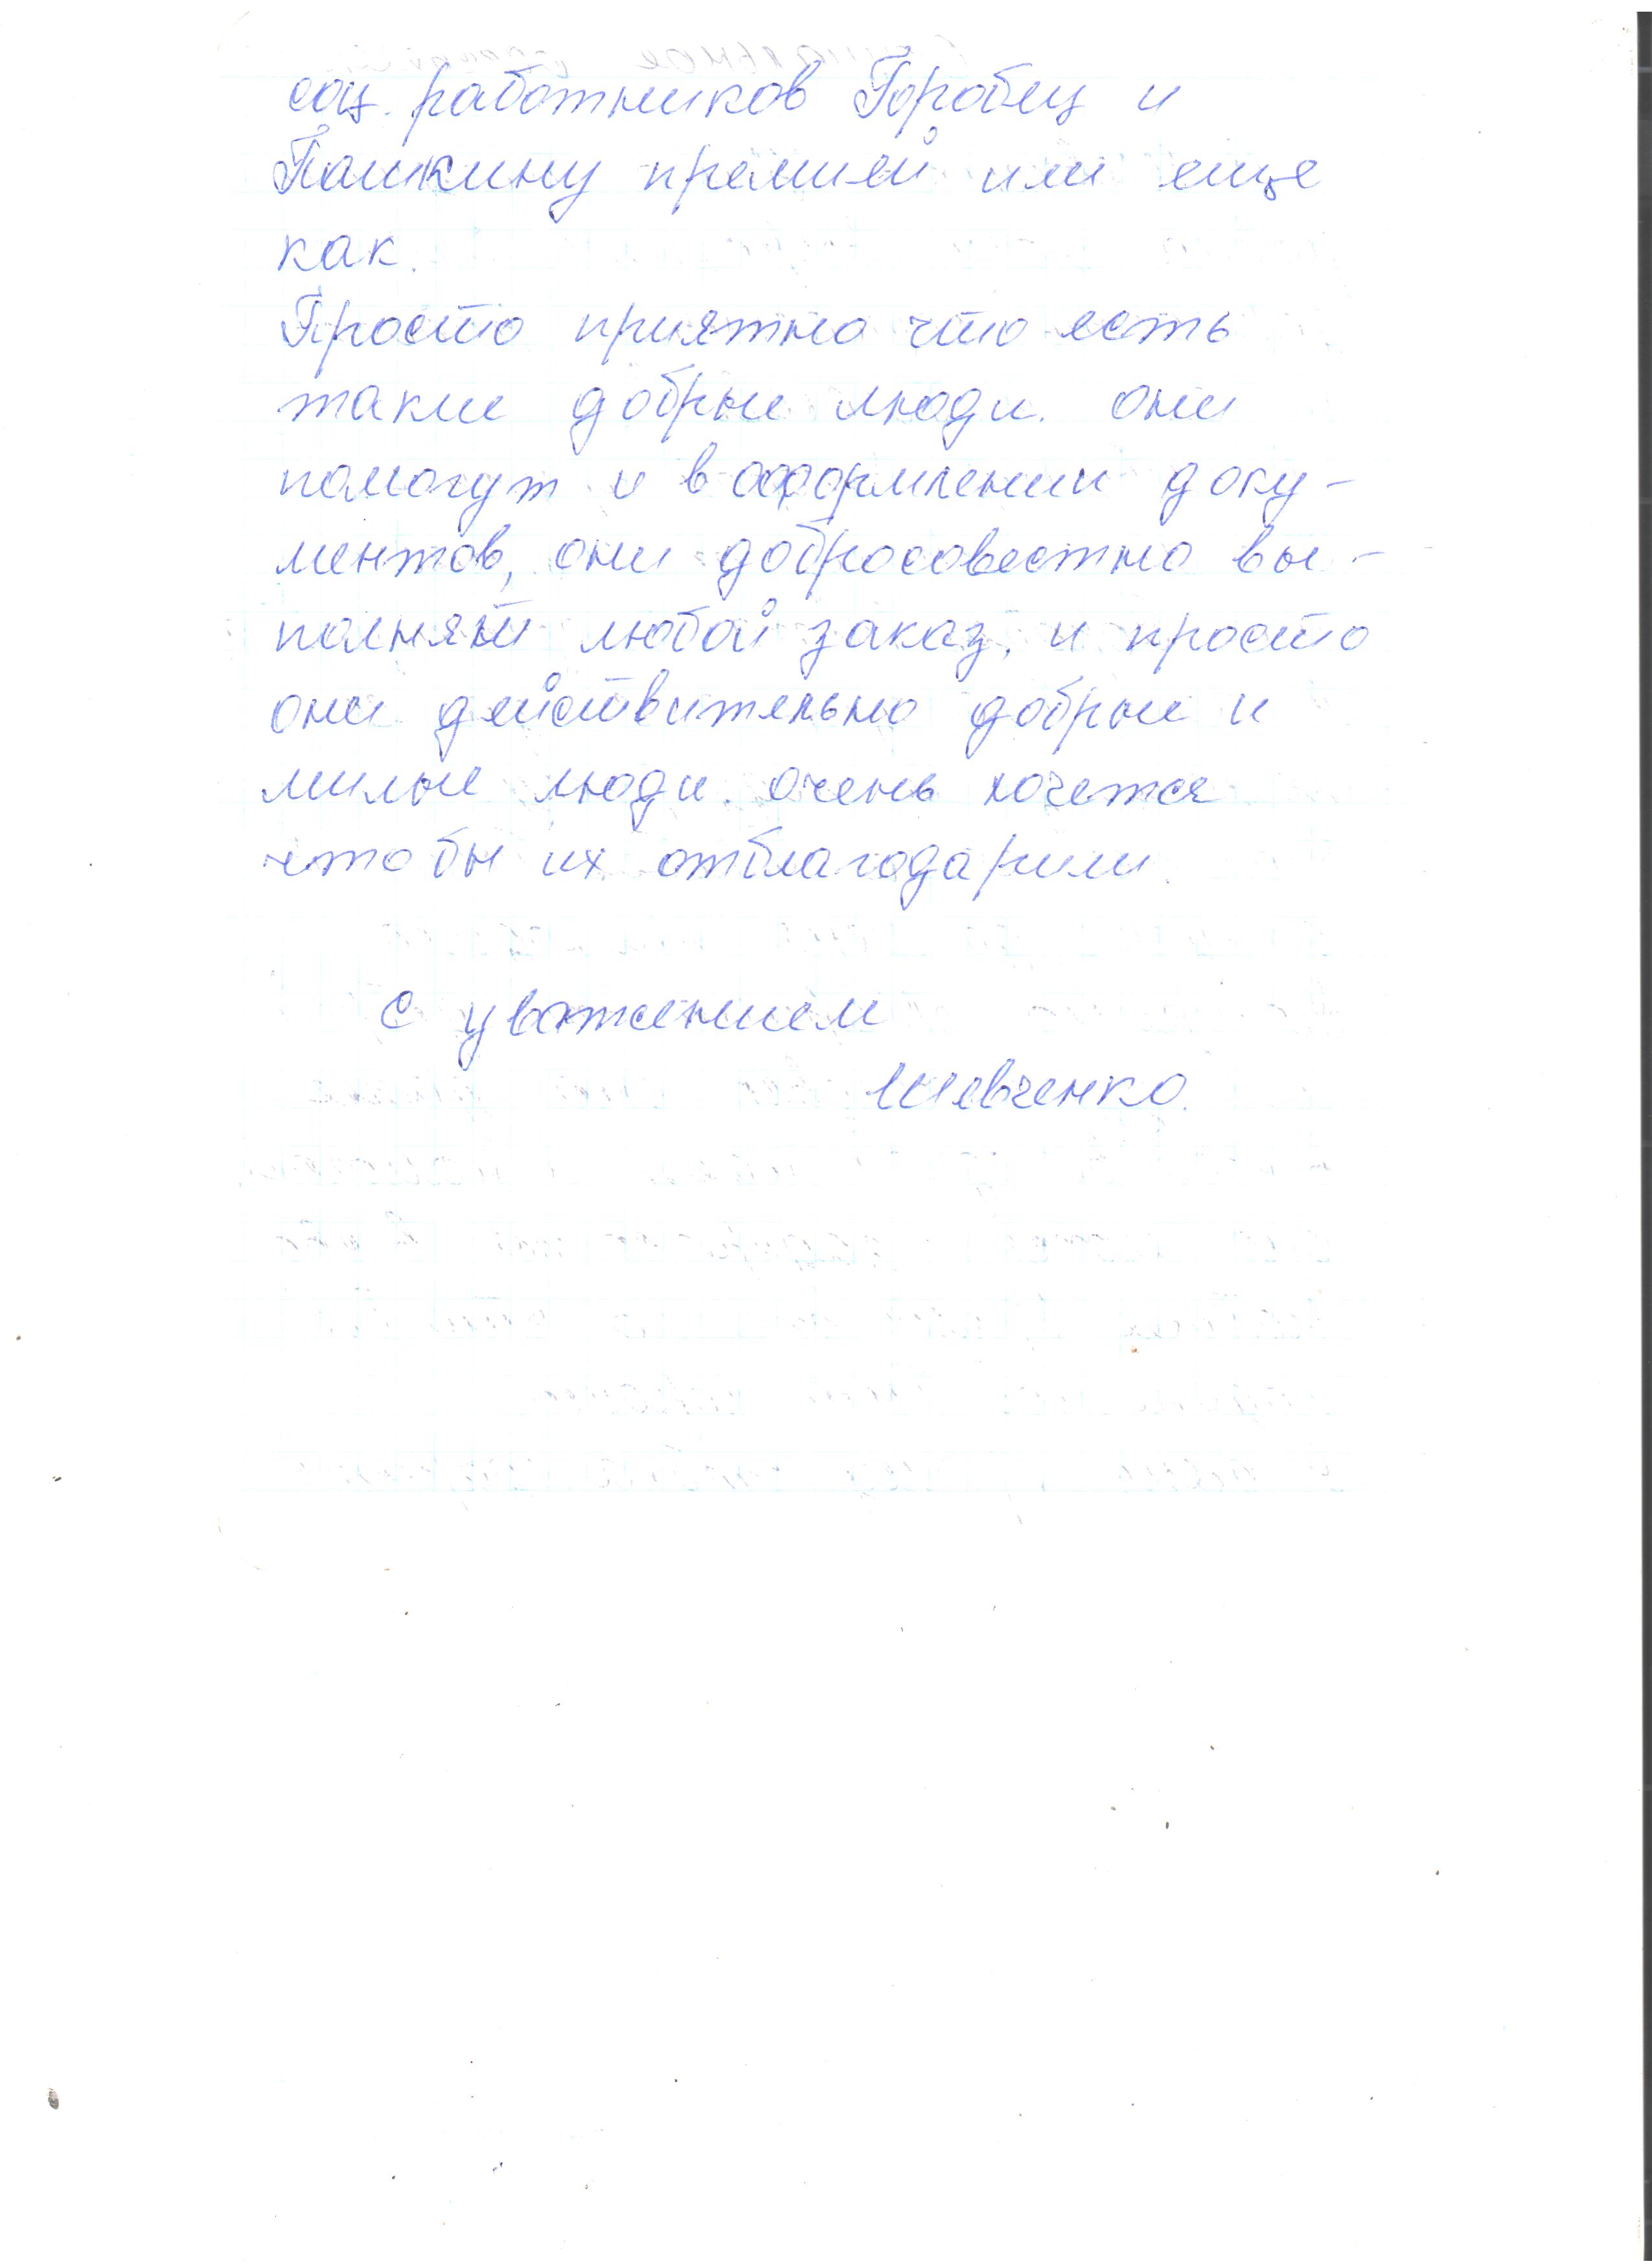 соц. работников Горобец и
Пашкину премией или еще
как.
Просто приятно что есть
такие добрые люди. они
помогут и в оформлении доку-
ментов, они добросовестно вы-
полнят любой заказ, и просто
они действительно добрые и
милые люди. очень хочется
чтобы их отблагодарили.
С уважением
Шевченко.